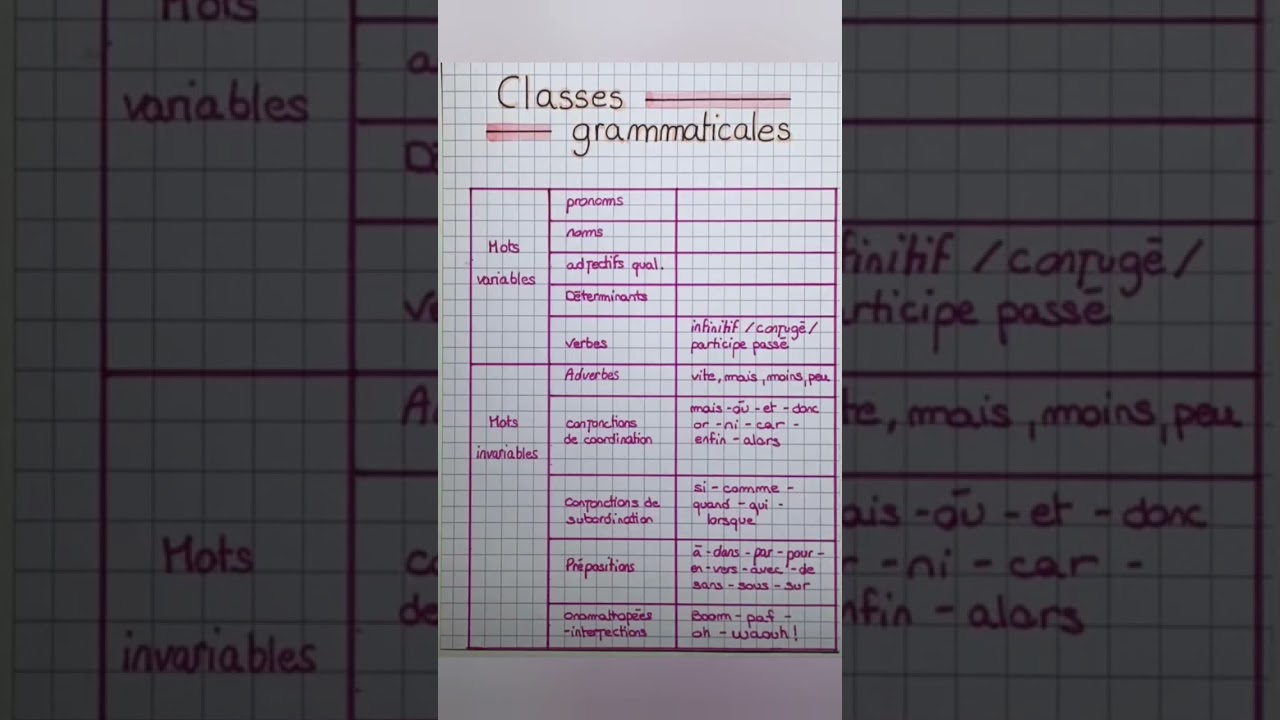 Classes
grammaticales
Mots
variables
pronoms
noms
adjectifs qual.
Déterminants
verbes
infinitif / conjugé /
participe passé
Mots
invariables
Adverbes
vite, mais, moins, peu
conjonctions
de coordination
mais - où - et - donc
or - ni - car -
enfin - alors
Conjonctions de
subordination
si - comme -
quand - qui -
lorsque
Prépositions
à - dans - par - pour -
en - vers - avec - de
sans - sous - sur
onomattopées
-interjections
Boom - paf -
oh - waouh !